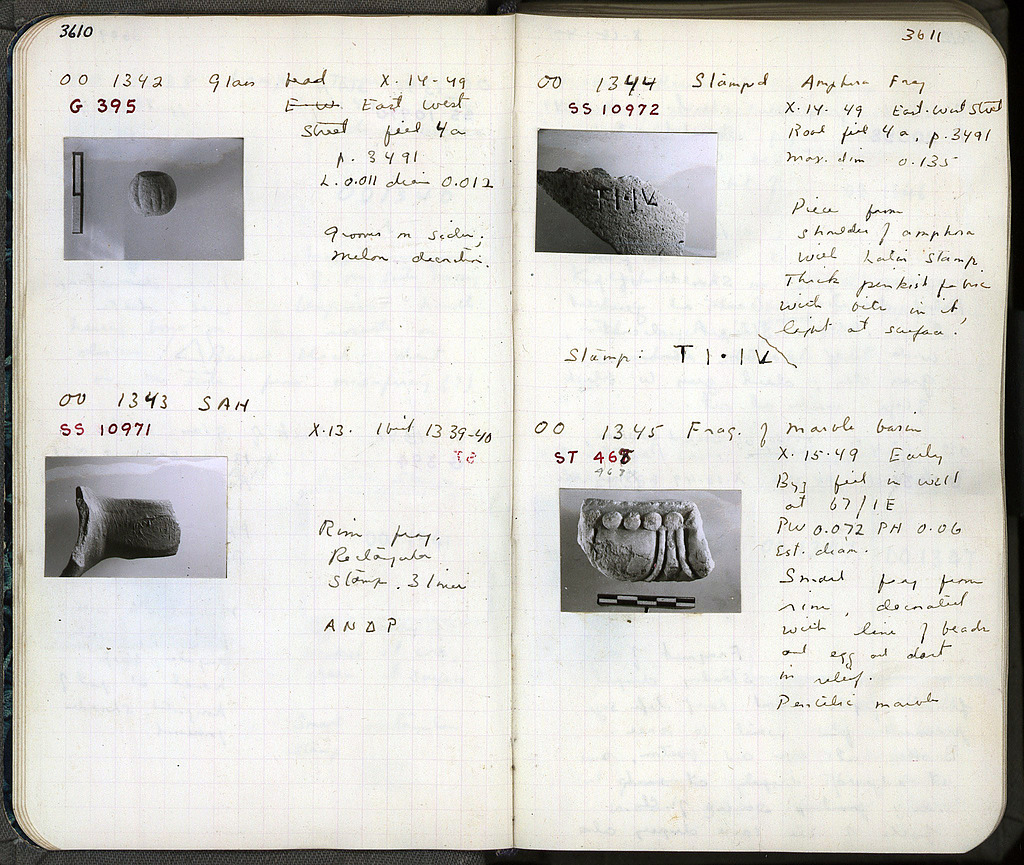 3610
OO 1342 Glass bead X-14-49
G 395 E-W. East West
Street fill 4a
p. 3491
L. 0.011 diam 0.012
Grooves on sides;
melon decoration.
OO 1343 SAH
SS 10971
X-13. 1339-40
Rim frag.
Rectangular
stamp. 3 lines
ANDP
3611
OO 1344 Stamped Amphora Frag
SS 10972 X-14-49 East-West Street
Road fill 4a, p. 3491
Max. dim 0.135
Piece from
shoulder of amphora
with Latin stamp.
Thick pinkish fabric
with bits in it,
light at surface.
TI·IV
Stamp: TI·IV
OO 1345 Frag. of marble basin
ST 468 X-15-49 Early
467
Byz fill in well
at 67/IE
PW 0.072 PH 0.06
Est. diam.
Small frag from
rim, decorated
with line of beads
and egg and dart
in relief.
Pentelic marble